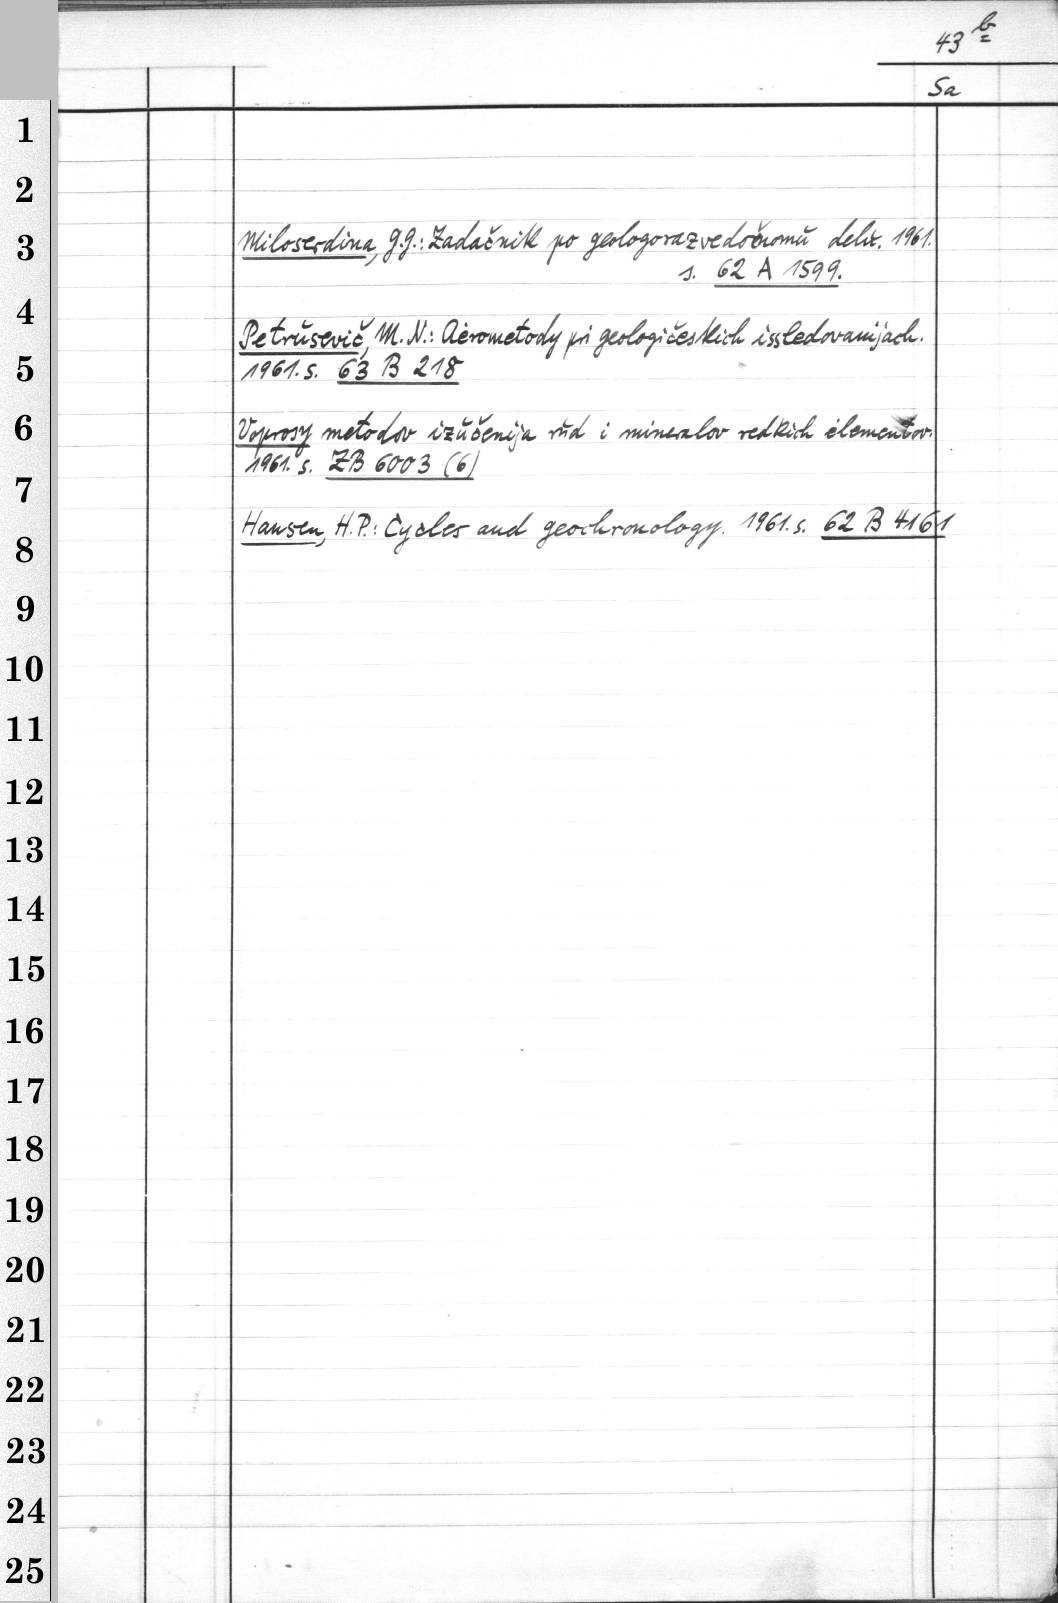 43 b
Sa
1
2
3
Miloserdina, G.G.: Zadačnik po geologorazvedočnomŭ delŭ. 1961.
s. 62 A 1599.
4
Petrŭsevič, M.N.: Aėrometody pri geologičeskich issledovanijach.
5
1961. s. 63 B 218
6
Voprosy metodov izŭčenija rŭd i mineralov redkich ėlementov.
1961. s. ZB 6003 (6)
7
Hansen, H.P.: Cycles and geochronology. 1961. s. 62 B 4161
8
9
10
11
12
13
14
15
16
17
18
19
20
21
22
23
24
25